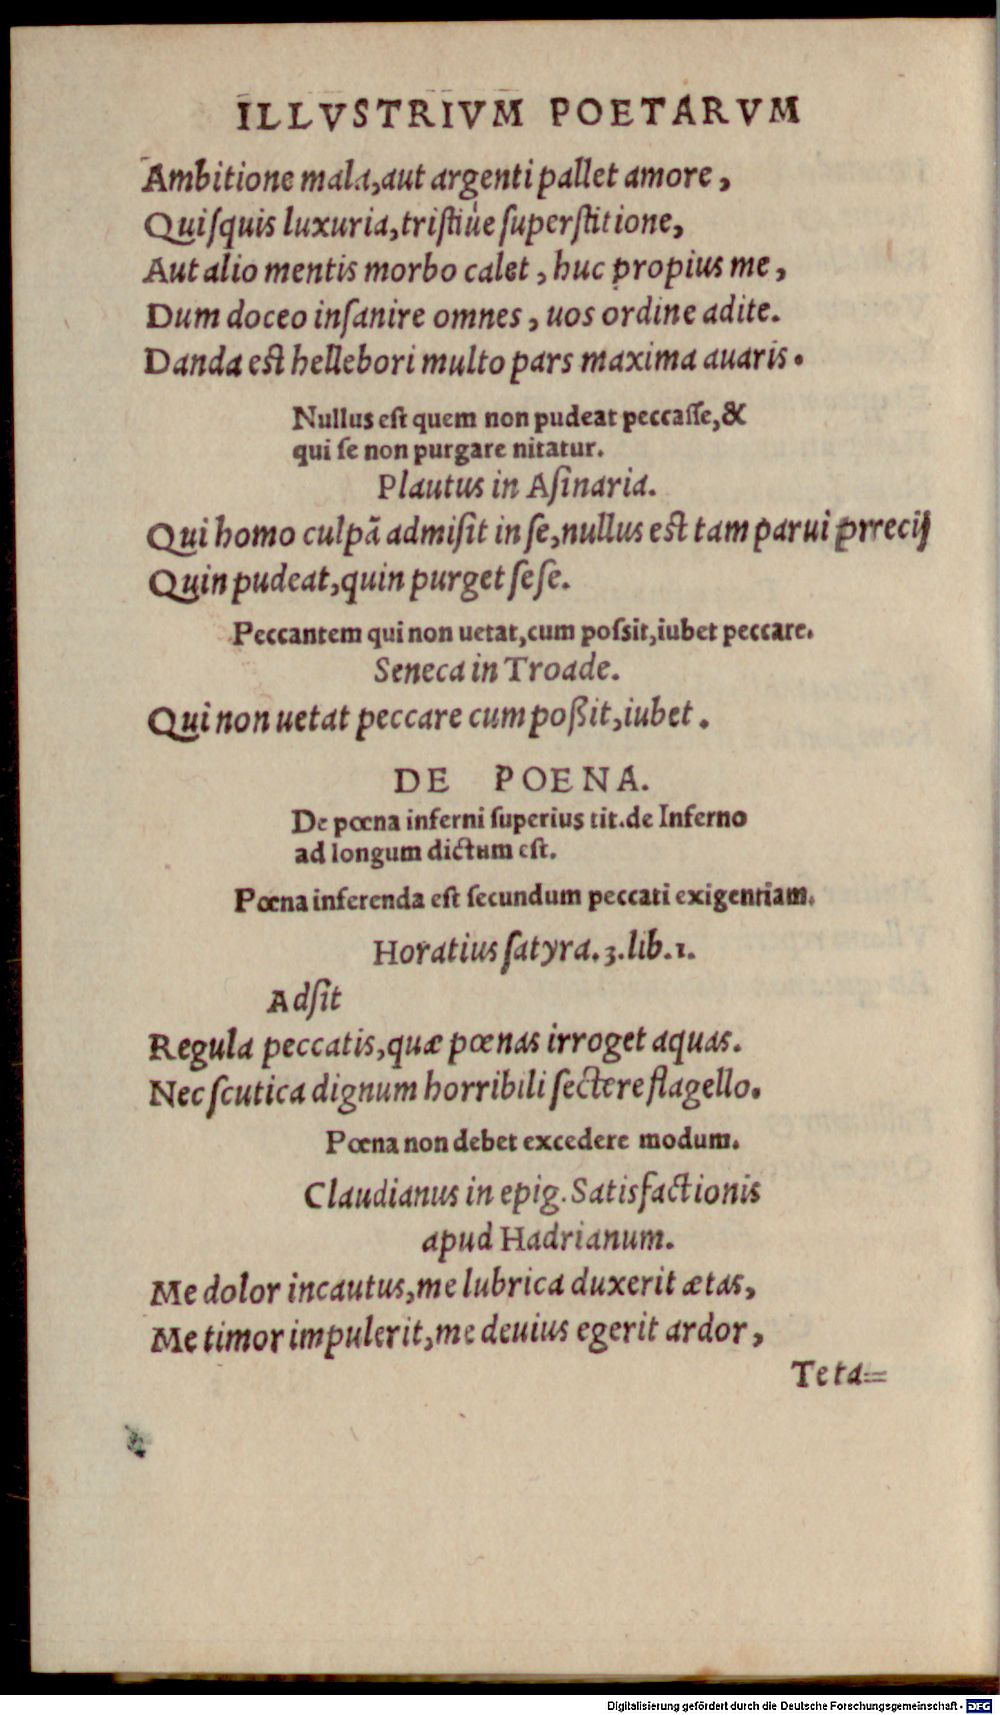 ILLVSTRIVM POETARVM
Ambitione mala, aut argenti pallet amore,
Quiſquis luxuria, triſtiúe ſuperſtitione,
Aut alio mentis morbo calet, huc propius me,
Dum doceo inſanire omnes, uos ordine adite.
Danda est hellebori multo pars maxima auaris.
Nullus eſt quem non pudeat peccaſſe, &
qui ſe non purgare nitatur.
Plautus in Aſinaria.
Qui homo culpã admiſit in ſe, nullus est tam parui prrecij
Quin pudeat, quin purget ſeſe.
Peccantem qui non uetat, cum poſsit, iubet peccare.
Seneca in Troade.
Qui non uetat peccare cum poßit, iubet.
DE POENA.
De pœna inferni ſuperius tit. de Inferno
ad longum dictum eſt.
Pœna inferenda eſt ſecundum peccati exigentiam.
Horatius ſatyra. 3. lib. 1.
Adſit
Regula peccatis, quæ pœnas irroget aquas.
Nec ſcutica dignum horribili ſectere flagello.
Pœna non debet excedere modum.
Claudianus in epig. Satisfactionis
apud Hadrianum.
Me dolor incautus, me lubrica duxerit ætas,
Me timor impulerit, me deuius egerit ardor,
Teta=
Digitalisierung gefördert durch die Deutsche Forschungsgemeinschaft - DFG